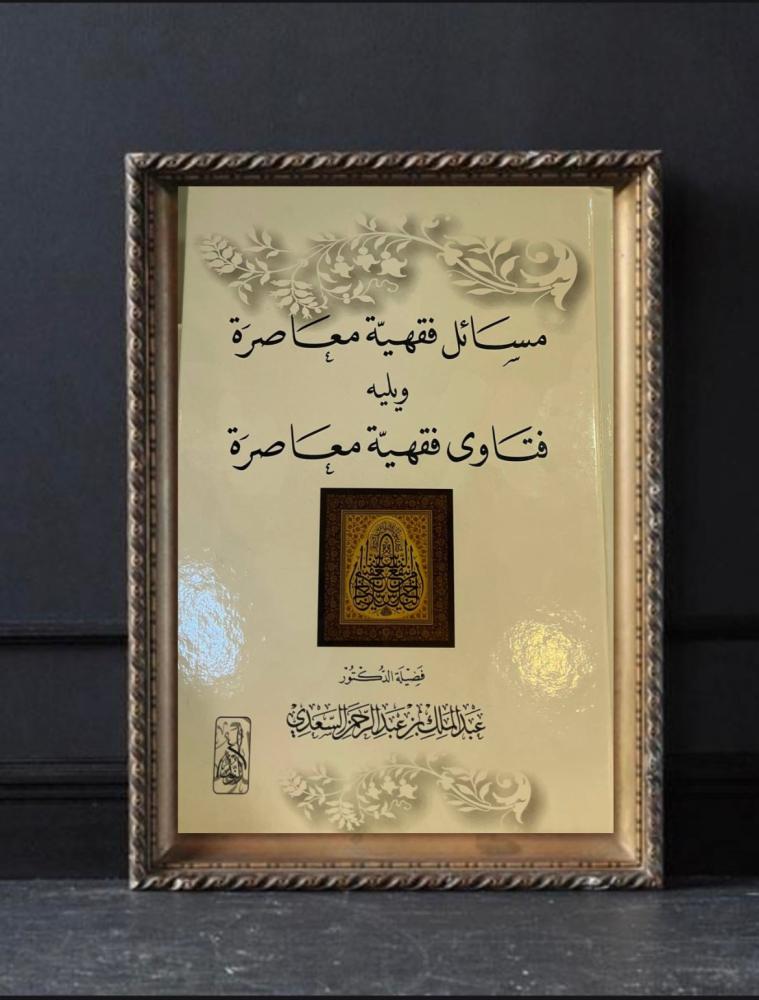 مسائل فقهيّة معاصرة
ويليه
فتاوى فقهيّة معاصرة
فَضِيْلَة الدُّكْتُوْر
عبد الملك بن عبد الرحمن السعدي